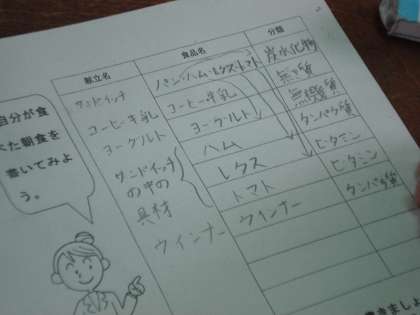 献立名 食品名 分類
サンドイッチ パン・ハム・レタス・トマト 炭水化物
コーヒー牛乳 コーヒー牛乳 無キ質
ヨーグルト ヨーグルト 無機質
サンドイッチの中の具材 ハム タンパク質
レタス ビタミン
トマト ビタミン
ウインナー ウインナー タンパク質
自分が食
べた朝食を
書いてみよ
う。
きましょ